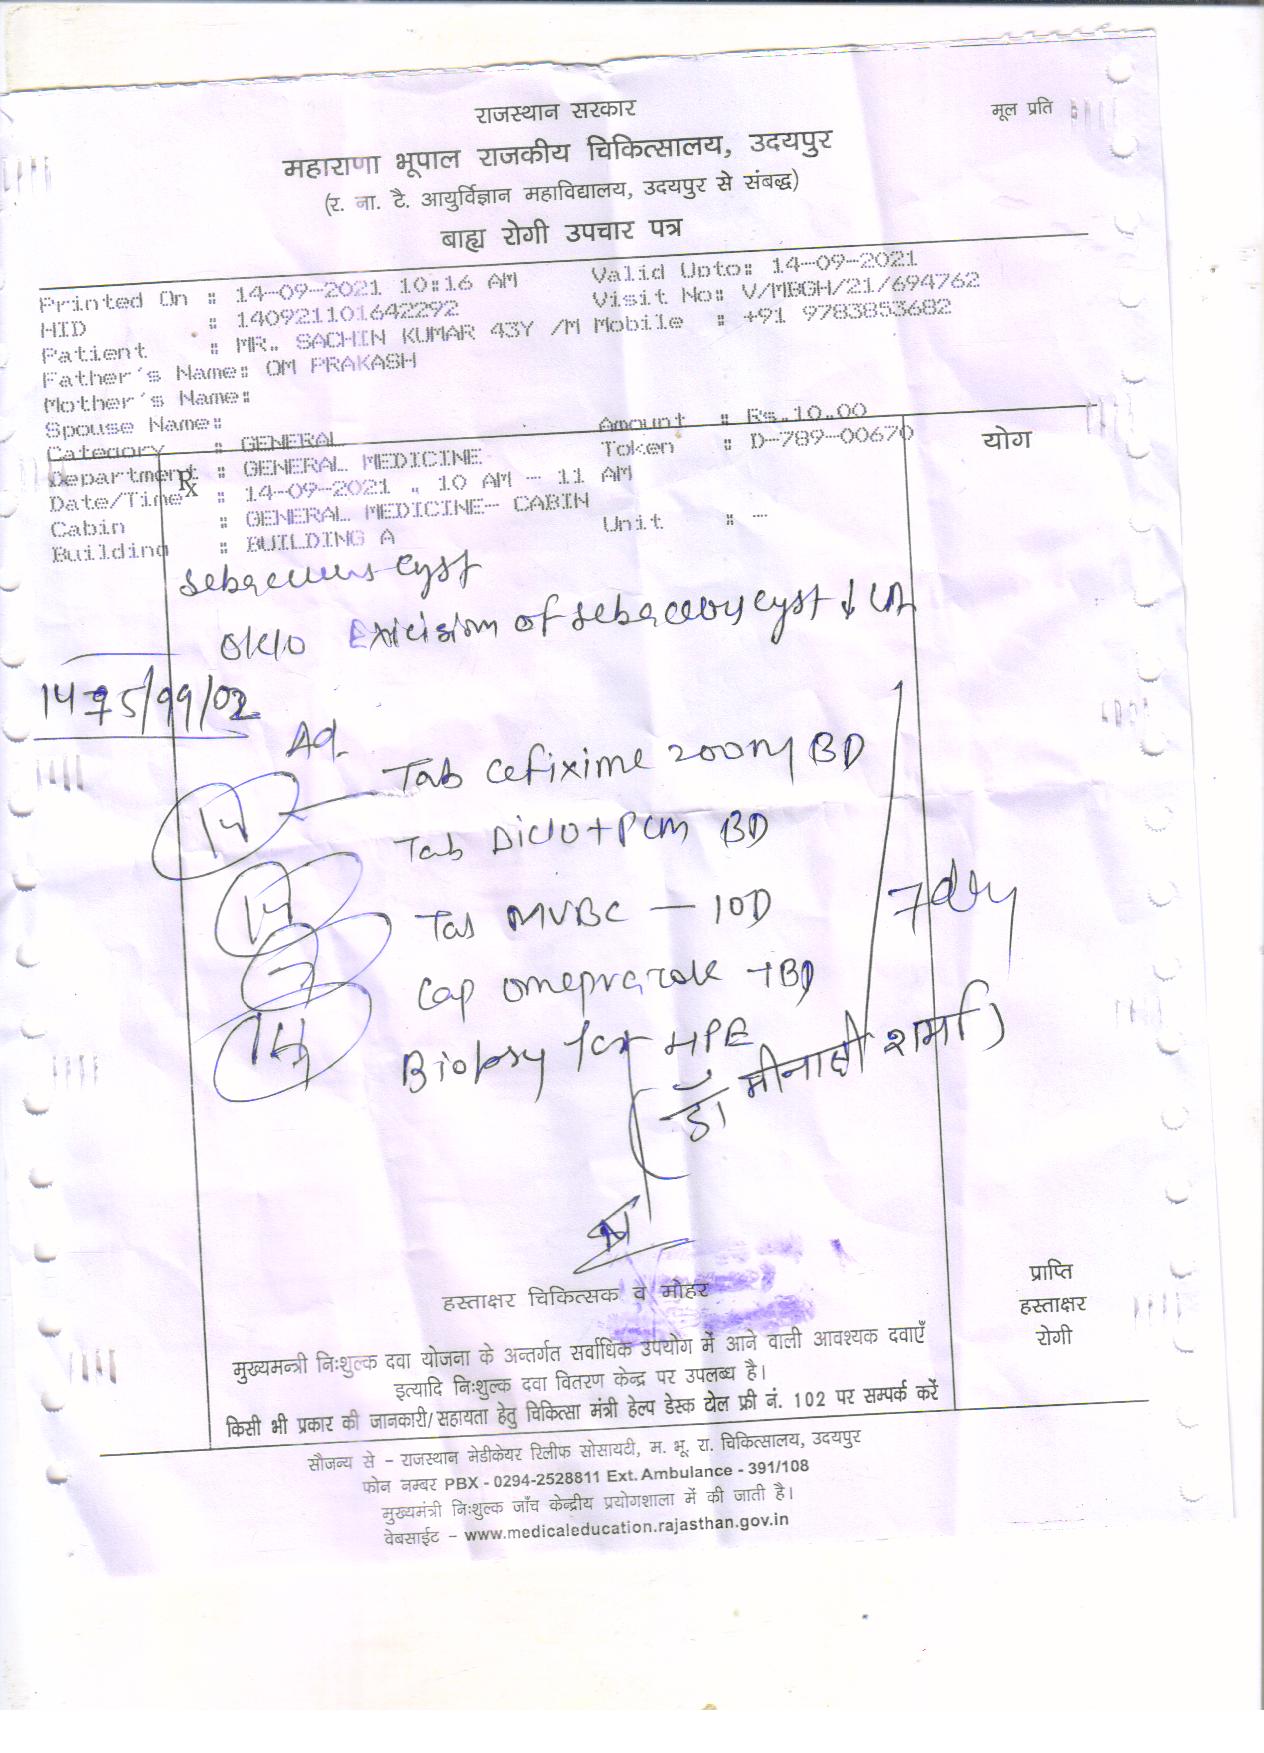 राजस्थान सरकार
मूल प्रति
महाराणा भूपाल राजकीय चिकित्सालय, उदयपुर
(र. ना. टै. आयुर्विज्ञान महाविद्यालय, उदयपुर से संबद्ध)
बाह्य रोगी उपचार पत्र
Printed On : 14-09-2021 10:16 AM Valid Upto: 14-09-2021
HID : 140921101642292 Visit No: V/MBGH/21/694762
Patient : MR. SACHIN KUMAR 43Y /M Mobile : +91 9783853682
Father's Name: OM PRAKASH
Mother's Name:
Spouse Name:
Category : GENERAL Amount : Rs.10.00
Department : GENERAL MEDICINE Token : D-789-00670
योग
Rx
Date/Time : 14-09-2021 , 10 AM - 11 AM
Cabin : GENERAL MEDICINE- CABIN Unit : -
Building : BUILDING A
Sebaceous cyst
Excision of sebaceous cyst ↓ LA
Ad.
Tab Cefixime 200mg BD
14
Tab Diclo+PCM BD
14
Tab MVBC - 1OD
7
Cap omeprazole - 1BD
14
7 day
Biopsy for HPE
(डॉ मीनाक्षी शर्मा)
हस्ताक्षर चिकित्सक व मोहर
प्राप्ति
हस्ताक्षर
रोगी
मुख्यमन्त्री निःशुल्क दवा योजना के अन्तर्गत सर्वाधिक उपयोग में आने वाली आवश्यक दवाएँ
इत्यादि निःशुल्क दवा वितरण केन्द्र पर उपलब्ध है।
किसी भी प्रकार की जानकारी/सहायता हेतु चिकित्सा मंत्री हेल्प डेस्क टोल फ्री नं. 102 पर सम्पर्क करें
सौजन्य से - राजस्थान मेडीकेयर रिलीफ सोसायटी, म. भू. रा. चिकित्सालय, उदयपुर
फोन नम्बर PBX - 0294-2528811 Ext. Ambulance - 391/108
मुख्यमंत्री निःशुल्क जाँच केन्द्रीय प्रयोगशाला में की जाती है।
वेबसाईट - www.medicaleducation.rajasthan.gov.in